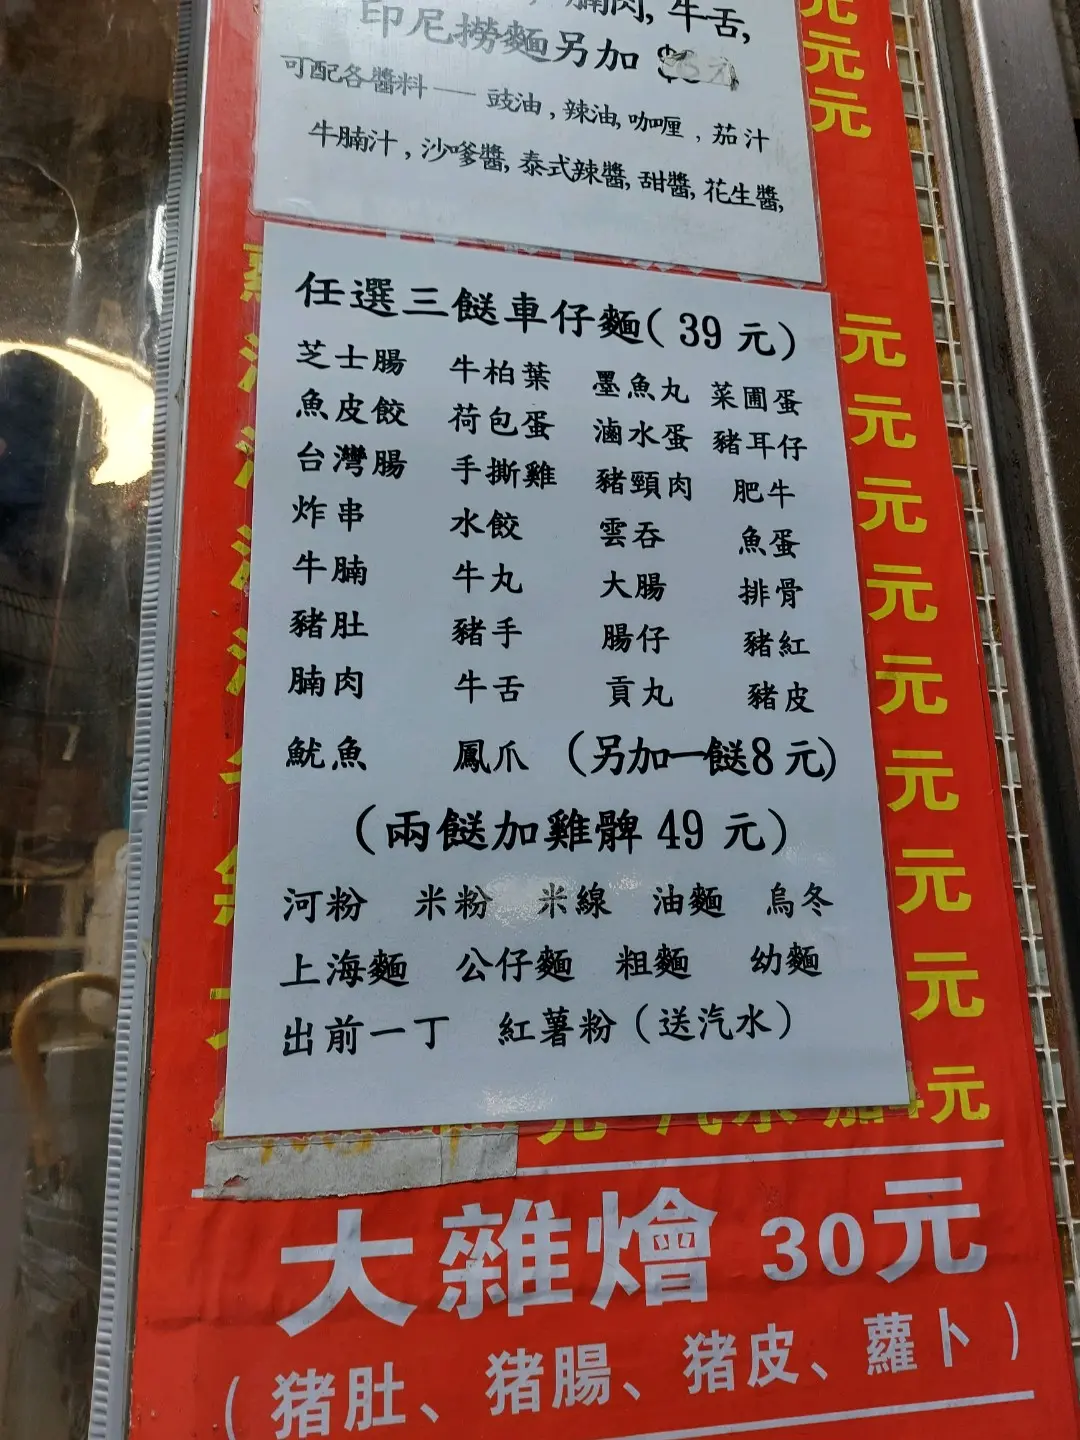 腩肉, 牛舌,
印尼撈麵另加
可配各醬料—— 豉油, 辣油, 咖喱, 茄汁
牛腩汁, 沙嗲醬, 泰式辣醬, 甜醬, 花生醬,
任選三餸車仔麵(39元)
芝士腸 牛柏葉 墨魚丸 菜圃蛋
魚皮餃 荷包蛋 滷水蛋 豬耳仔
台灣腸 手撕雞 豬頸肉 肥牛
炸串 水餃 雲吞 魚蛋
牛腩 牛丸 大腸 排骨
豬肚 豬手 腸仔 豬紅
腩肉 牛舌 貢丸 豬皮
魷魚 鳳爪 (另加一餸8元)
(兩餸加雞髀49元)
河粉 米粉 米線 油麵 烏冬
上海麵 公仔麵 粗麵 幼麵
出前一丁 紅薯粉(送汽水)
元
元
元
元
元
元
元
元
元
元
元
元
大雜燴 30元
(猪肚、猪腸、猪皮、蘿卜)